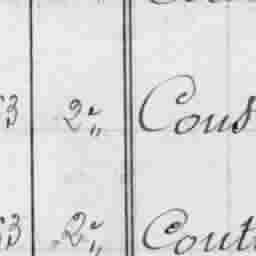 3 2 " Cous
3 2 " Cout